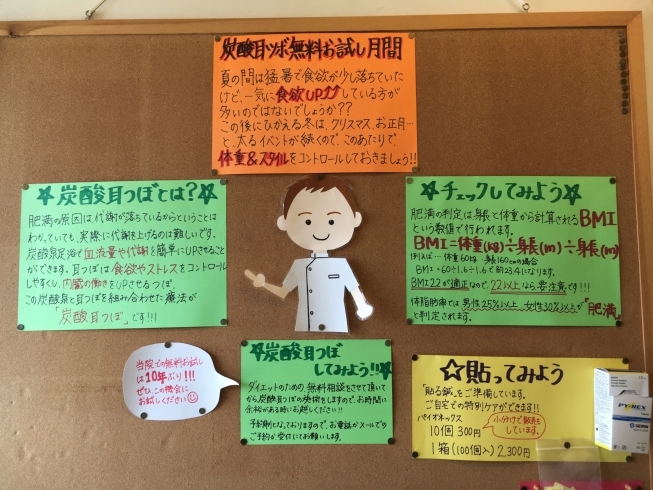 炭酸耳ツボ無料お試し月間
夏の間は猛暑で食欲が少し落ちていた
けど、一気に食欲UP⤴⤴している方が
多いのではないでしょうか??
この後にひかえる冬は、クリスマス、お正月…
と、太るイベントが続くので、このあたりで
体重&スタイルをコントロールしておきましょう!!
☆炭酸耳つぼとは?☆
肥満の原因は代謝が落ちているからということは
わかっていても、実際に代謝を上げるのは難しいです。
炭酸泉足浴で血流量や代謝を簡単にUPさせることが
できます。耳つぼは食欲やストレスをコントロール
しやすくし、内臓の働きをUPさせるつぼ。
この炭酸泉と耳つぼを組み合わせた療法が
「炭酸耳つぼ」です!!!
☆チェックしてみよう☆
肥満の判定は身長と体重から計算されるBMI
という数値で行われます。
BMI=体重(kg)÷身長(m)÷身長(m)
例えば…体重60kg 身長160cmの場合
BMI=60÷1.6÷1.6で約23.4になります。
BMI22が適正なので、22以上なら要注意です!!!
体脂肪率では男性25%以上、女性30%以上が「肥満」
と判定されます。
当院での無料お試し
は10年ぶり!!!
ぜひこの機会に
お試しください☺
☆炭酸耳つぼ
してみよう!!☆
ダイエットのための無料相談をさせて頂いて
から炭酸耳つぼの施術をしますので、お時間に
余裕がある時にお越しください!!
予約制となっておりますので、お電話かメールでの
ご予約か受付にてお願いします。
☆貼ってみよう
「貼る鍼」をご準備しています。
ご自宅での特別ケアができます!!
パイオネックス
10個 300円
小分けで販売も
しています。
1箱(100個入)2,300円
PYONEX
SEIRIN